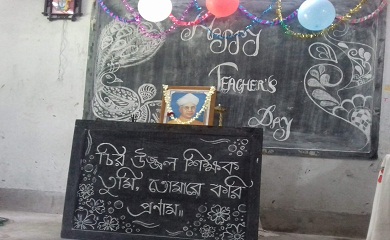 Happy
Teacher's
Day
চির উজ্জ্বল শিক্ষক
তুমি, তোমারে করি
প্রণাম॥